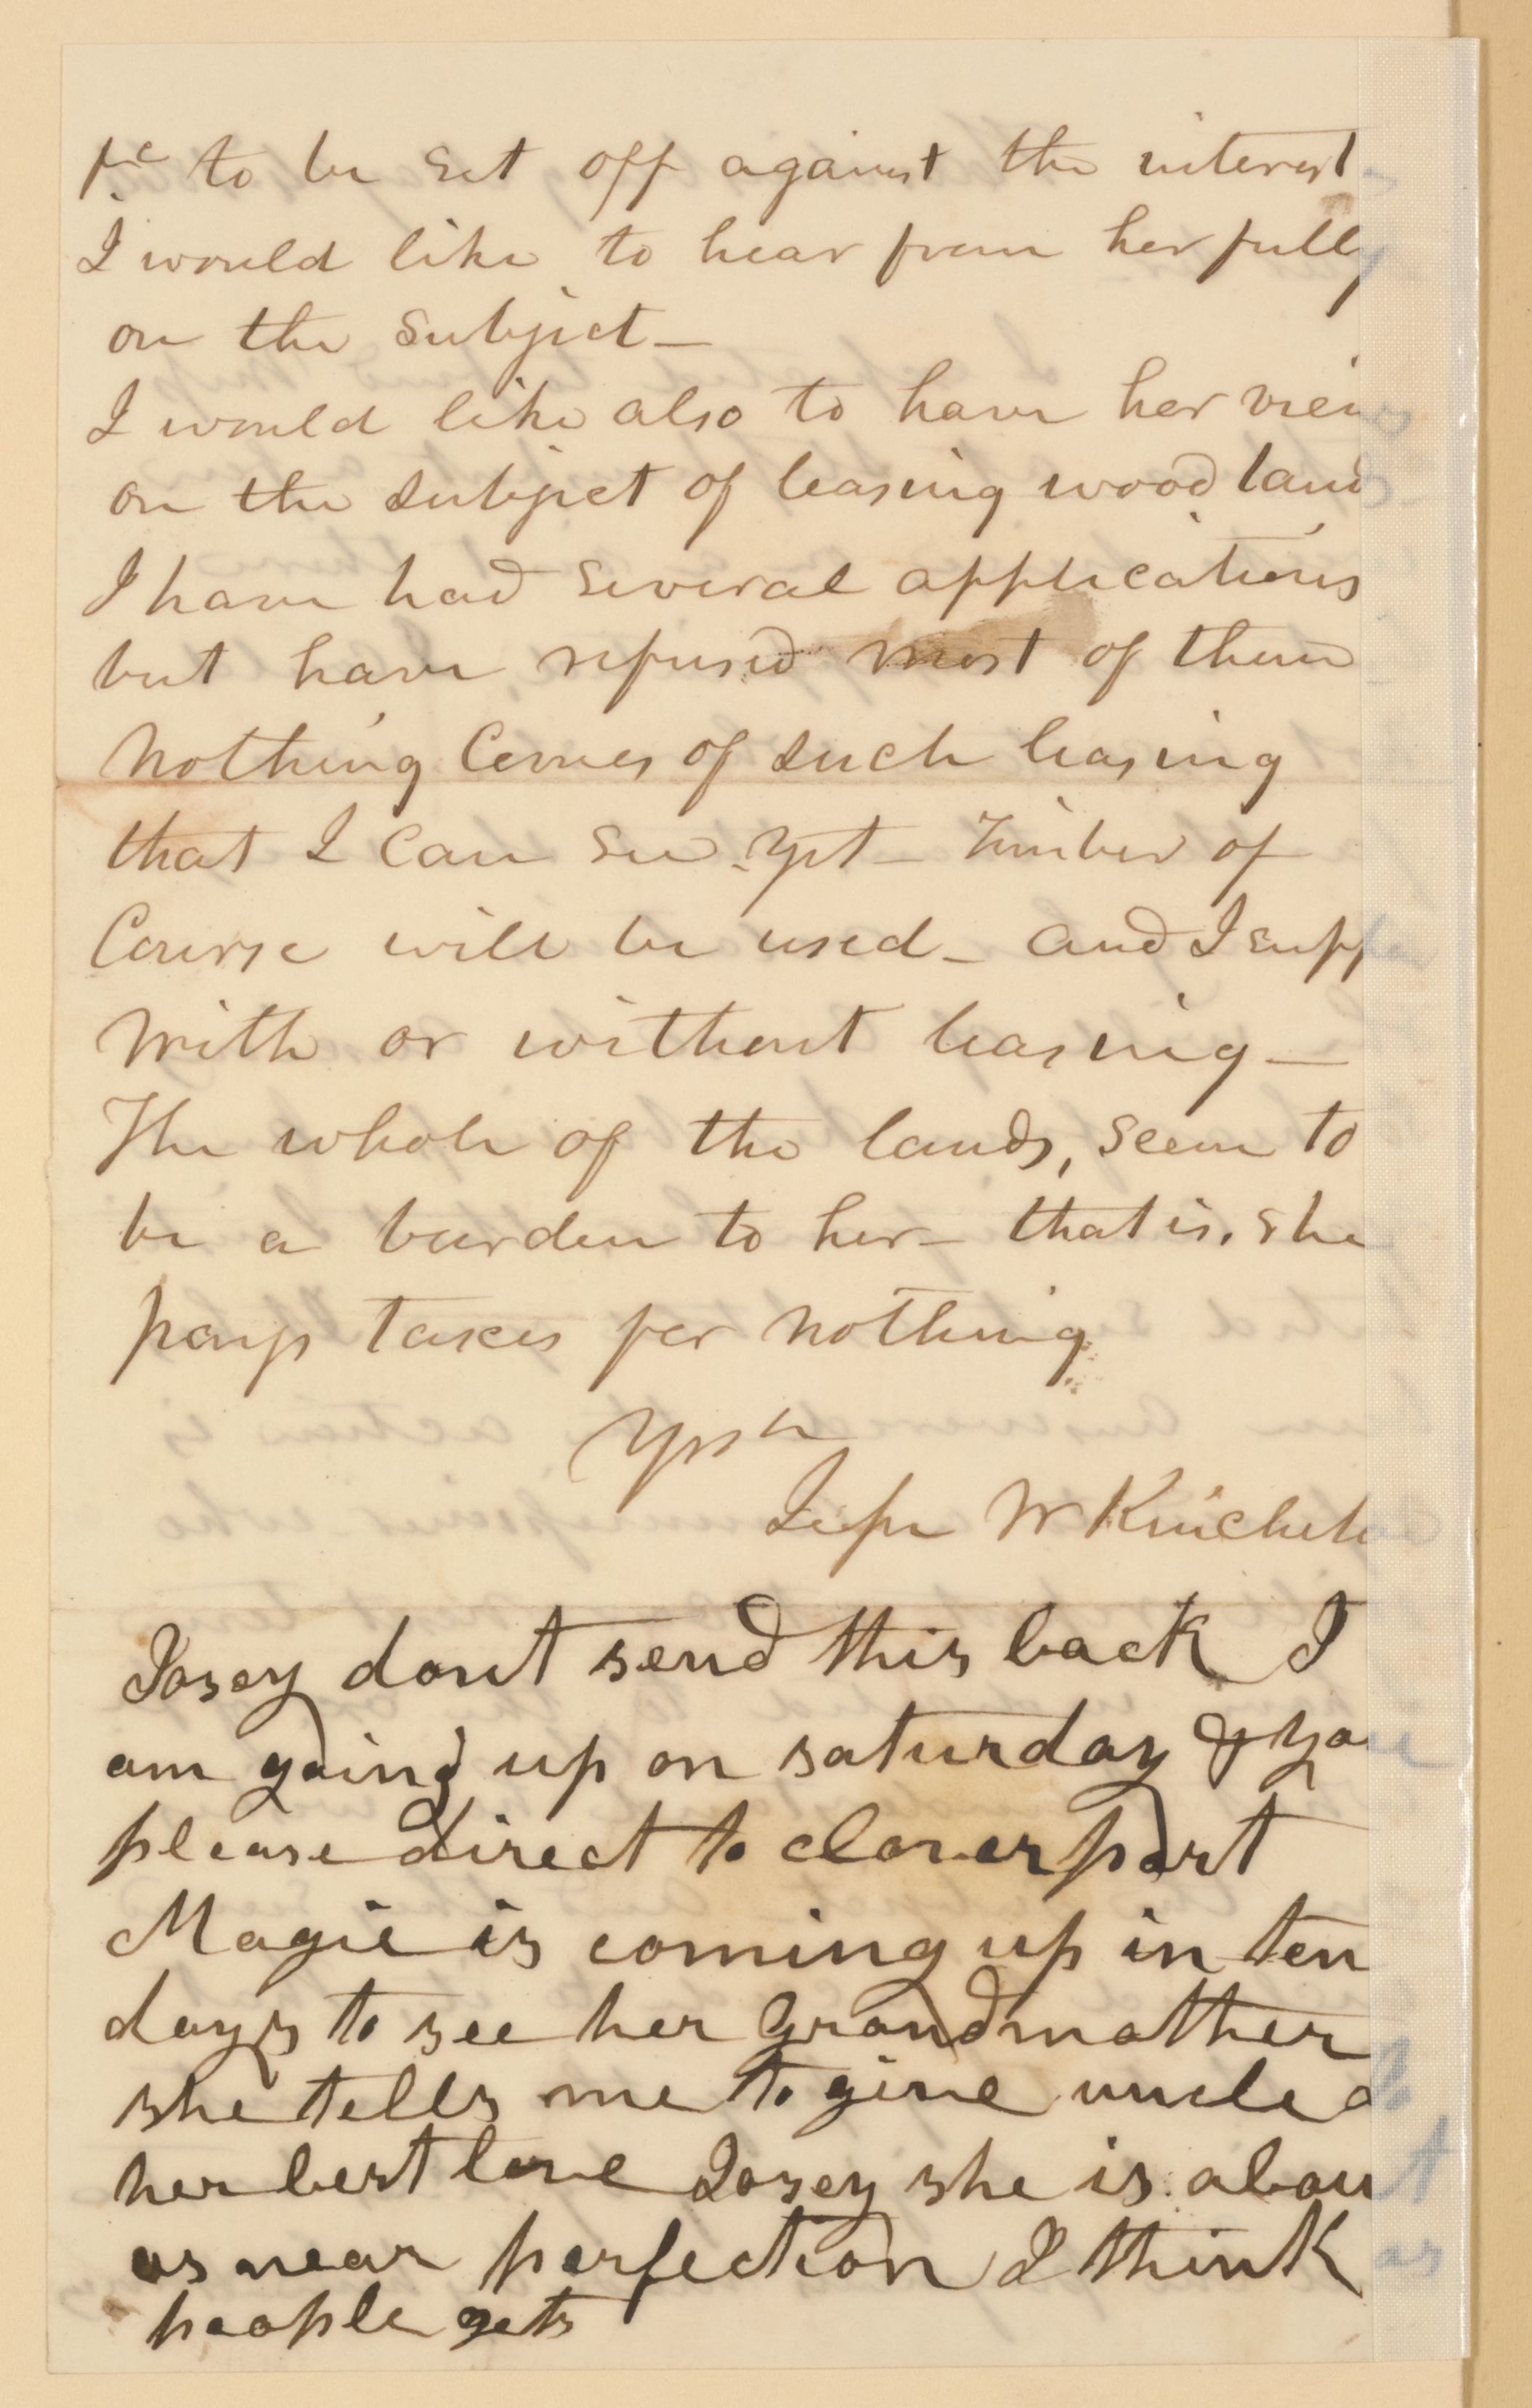 &c to be set off against the interest
I would like to hear from her fully
on the subject_
I would like also to have her views
on the subject of leasing wood lands
I have had several applications
but have refused most of them
Nothing Comes of such leasing
that I can see yet_ Timber of
Course will be used_ and I supp
With or without leasing_
The whole of the lands, seem to
be a burden to her_ that is, she
pays taxes for nothing
Yrs &c
Jesse W Kincheloe
Josey dont send this back I
am going up on saturday & you
please direct to cloverport
Magie is coming up in ten
days to see her grandmother
she tells me to give uncle
her best love Josey she is about
as near perfection I think as
people gets